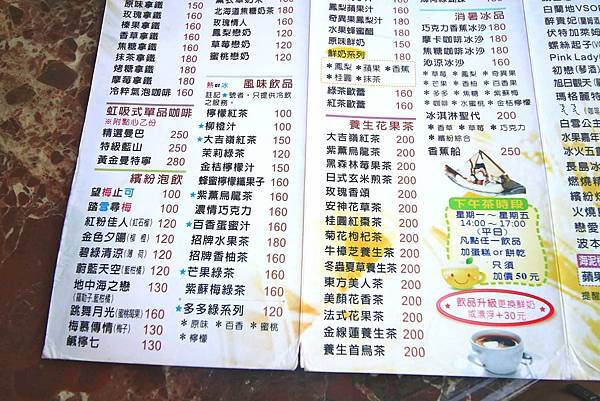 原味拿鐵 150
玫瑰拿鐵 160
榛果拿鐵 160
香草拿鐵 160
焦糖拿鐵 160
抹茶拿鐵 180
烤糖拿鐵 180
摩莓拿鐵 180
冷粹氣泡咖啡 160
虹吸式單品咖啡
*附點心乙份
精選曼巴 250
特級藍山 250
黃金曼特寧 280
繽紛泡飲
望梅止可 100
踏雪尋梅 100
紅粉佳人(紅石榴) 120
金色夕陽(柳橙) 120
碧綠清涼(薄荷) 120
蔚藍天空(藍柑橘) 120
地中海之戀 130
(羅勒子,藍柑橘)
跳舞月光(蜜桃鳳果) 160
梅慕傳情(梅子) 130
鹹檸七 130
北海道焦糖奶茶 180
玫瑰情人 160
鳳梨戀奶 120
草莓戀奶 120
蜜桃戀奶 120
熱or冰 風味飲品
註記*號者,只提供冷飲
之服務。
檸檬紅茶 100
*柳橙汁 100
*大吉嶺紅茶 150
茉莉綠茶 120
金桔檸檬汁 150
蜂蜜檸檬纖果子 160
*紫薰烏龍茶 150
濃情巧克力 160
*百香蛋蜜汁 160
招牌水果茶 180
招牌香柚茶 160
*芒果綠茶 150
紫蘇梅綠茶 160
*多多綠系列 120
*原味 *百香 *蜜桃
*檸檬
鳳蘋果汁 160
奇異果鳳梨汁 160
水果蜂蜜醋 160
原味鮮奶 150
鮮奶系列 180
*鳳梨 *蘋果 *香蕉
*桂圓 *抹茶
綠茶歐蕾 160
紅茶歐蕾 160
養生花果茶
大吉嶺紅茶 200
紫薰烏龍茶 200
黑森林莓果茶 200
日式玄米煎茶 200
玫瑰香頌 200
安神花草茶 200
桂圓紅棗茶 200
菊花枸杞茶 200
牛樟芝養生茶 200
冬蟲夏草養生茶 200
東方美人茶 200
美顏花香茶 200
法式花果茶 200
金線蓮養生茶 200
養生首烏茶 200
消暑冰品
巧克力香蕉冰沙 180
摩卡咖啡冰沙 180
焦糖咖啡冰沙 180
沁涼冰沙 160
*草莓 *鳳梨 *奇異果
*芒果 *原味 *百香
*多多 *焦糖 *蘇梅
*咖啡 *水蜜桃 *金桔檸檬
冰淇淋聖代 200
*香草 *草莓 *巧克力
*繽紛綜合
香蕉船 250
下午茶時段
星期一~星期五
14:00~17:00
(平日)
凡點任一飲品
加蛋糕or餅乾
只須
加價50元
飲品升級更換鮮奶
或漂浮+30元
Pink Lady